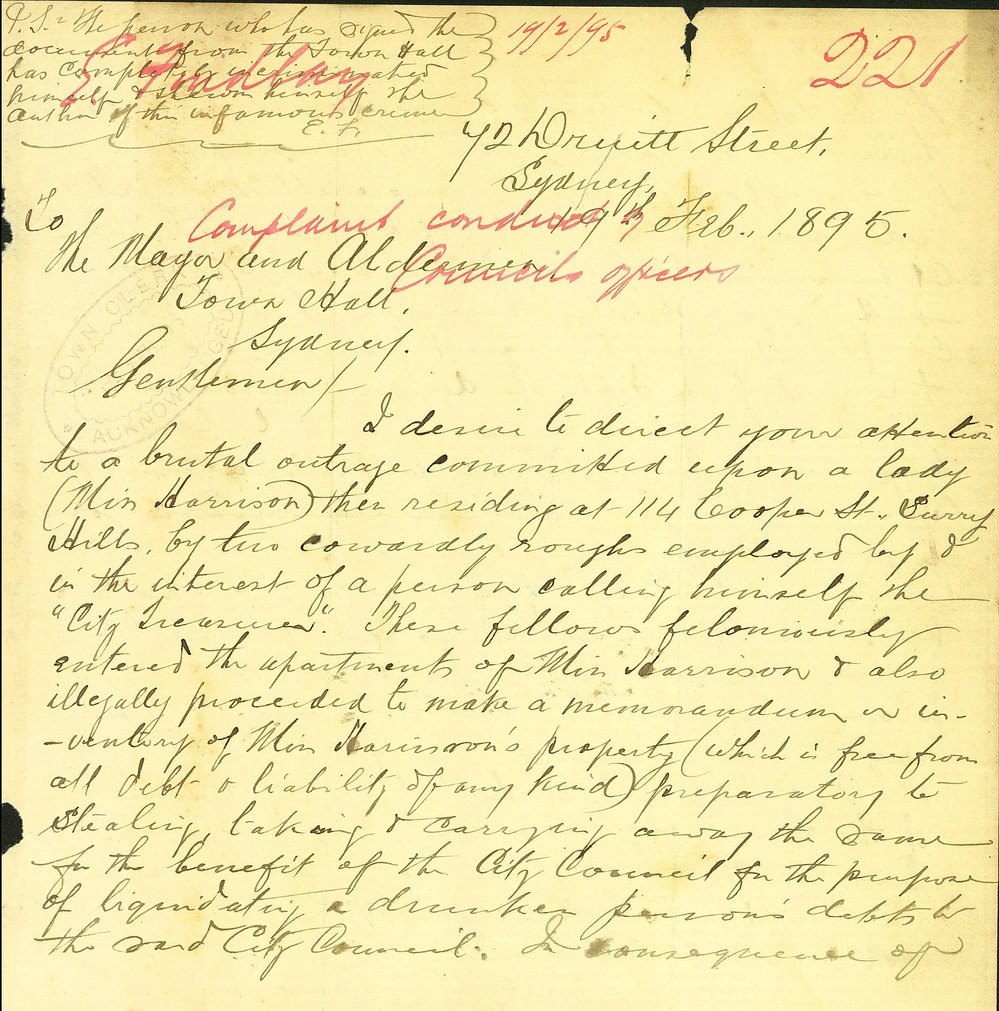 P.S. The person who has signed the
document from the Town Hall
has completely incriminated
himself & shewn himself the
author of this infamous crime
E. F.
19/2/95
221
E. Findlay
72 Druitt Street,
Sydney,
19th Feb., 1895.
Complaint conduct of
Council's officers
To
The Mayor and Aldermen,
Town Hall,
Sydney.
TOWN CLERK
ACKNOWLEDGED
Gentlemen/-
I desire to direct your attention
to a brutal outrage committed upon a lady
(Miss Harrison) then residing at 114 Cooper St., Surry
Hills, by two cowardly roughs employed by &
in the interest of a person calling himself the
"City Treasurer". These fellows feloniously
entered the apartments of Miss Harrison & also
illegally proceeded to make a memorandum or in-
-ventory of Miss Harrison's property (which is free from
all debt or liability of any kind) preparatory to
stealing, taking & carrying away the same
for the benefit of the City Council for the purpose
of liquidating a drunken person's debts to
the said City Council. In consequence of